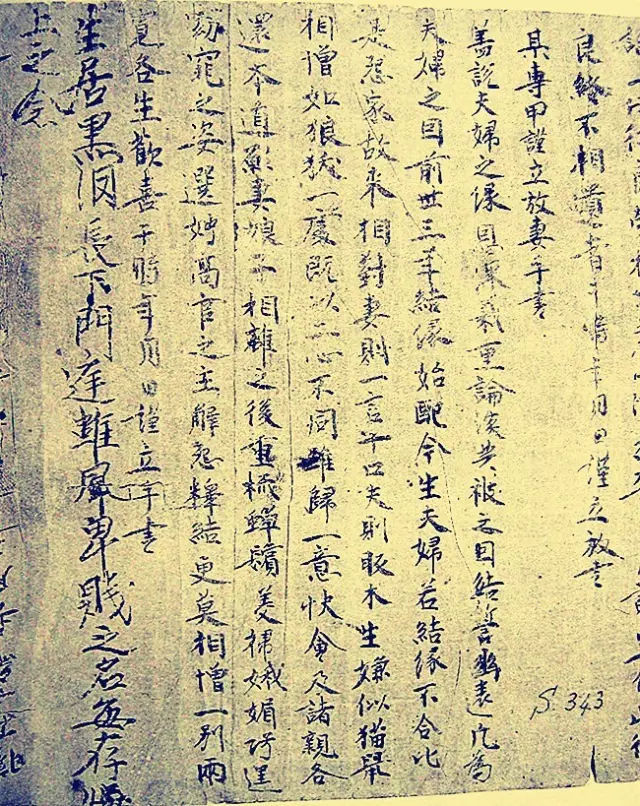 良終不相遺者于時年月日謹立放書
某專甲謹立放妻手書
蓋說夫婦之緣恩深義重論談共被之因結誓幽遠凡為
夫婦之因前世三年結緣始配今生夫婦若結緣不合比
是怨家故來相對妻則一言十口夫則販木生嫌似猫鼠
相憎如狼犾一處既以二心不同難歸一意快會及諸親各
還本道願妻娘子相離之後重梳蟬鬢美掃娥媚巧逞
窈窕之姿選娉高官之主解怨釋結更莫相憎一別兩
寬各生歡喜于時年月日謹立手書
生居黑淚長下門庭雖屬卑賤之名每存
上之念
S. 343